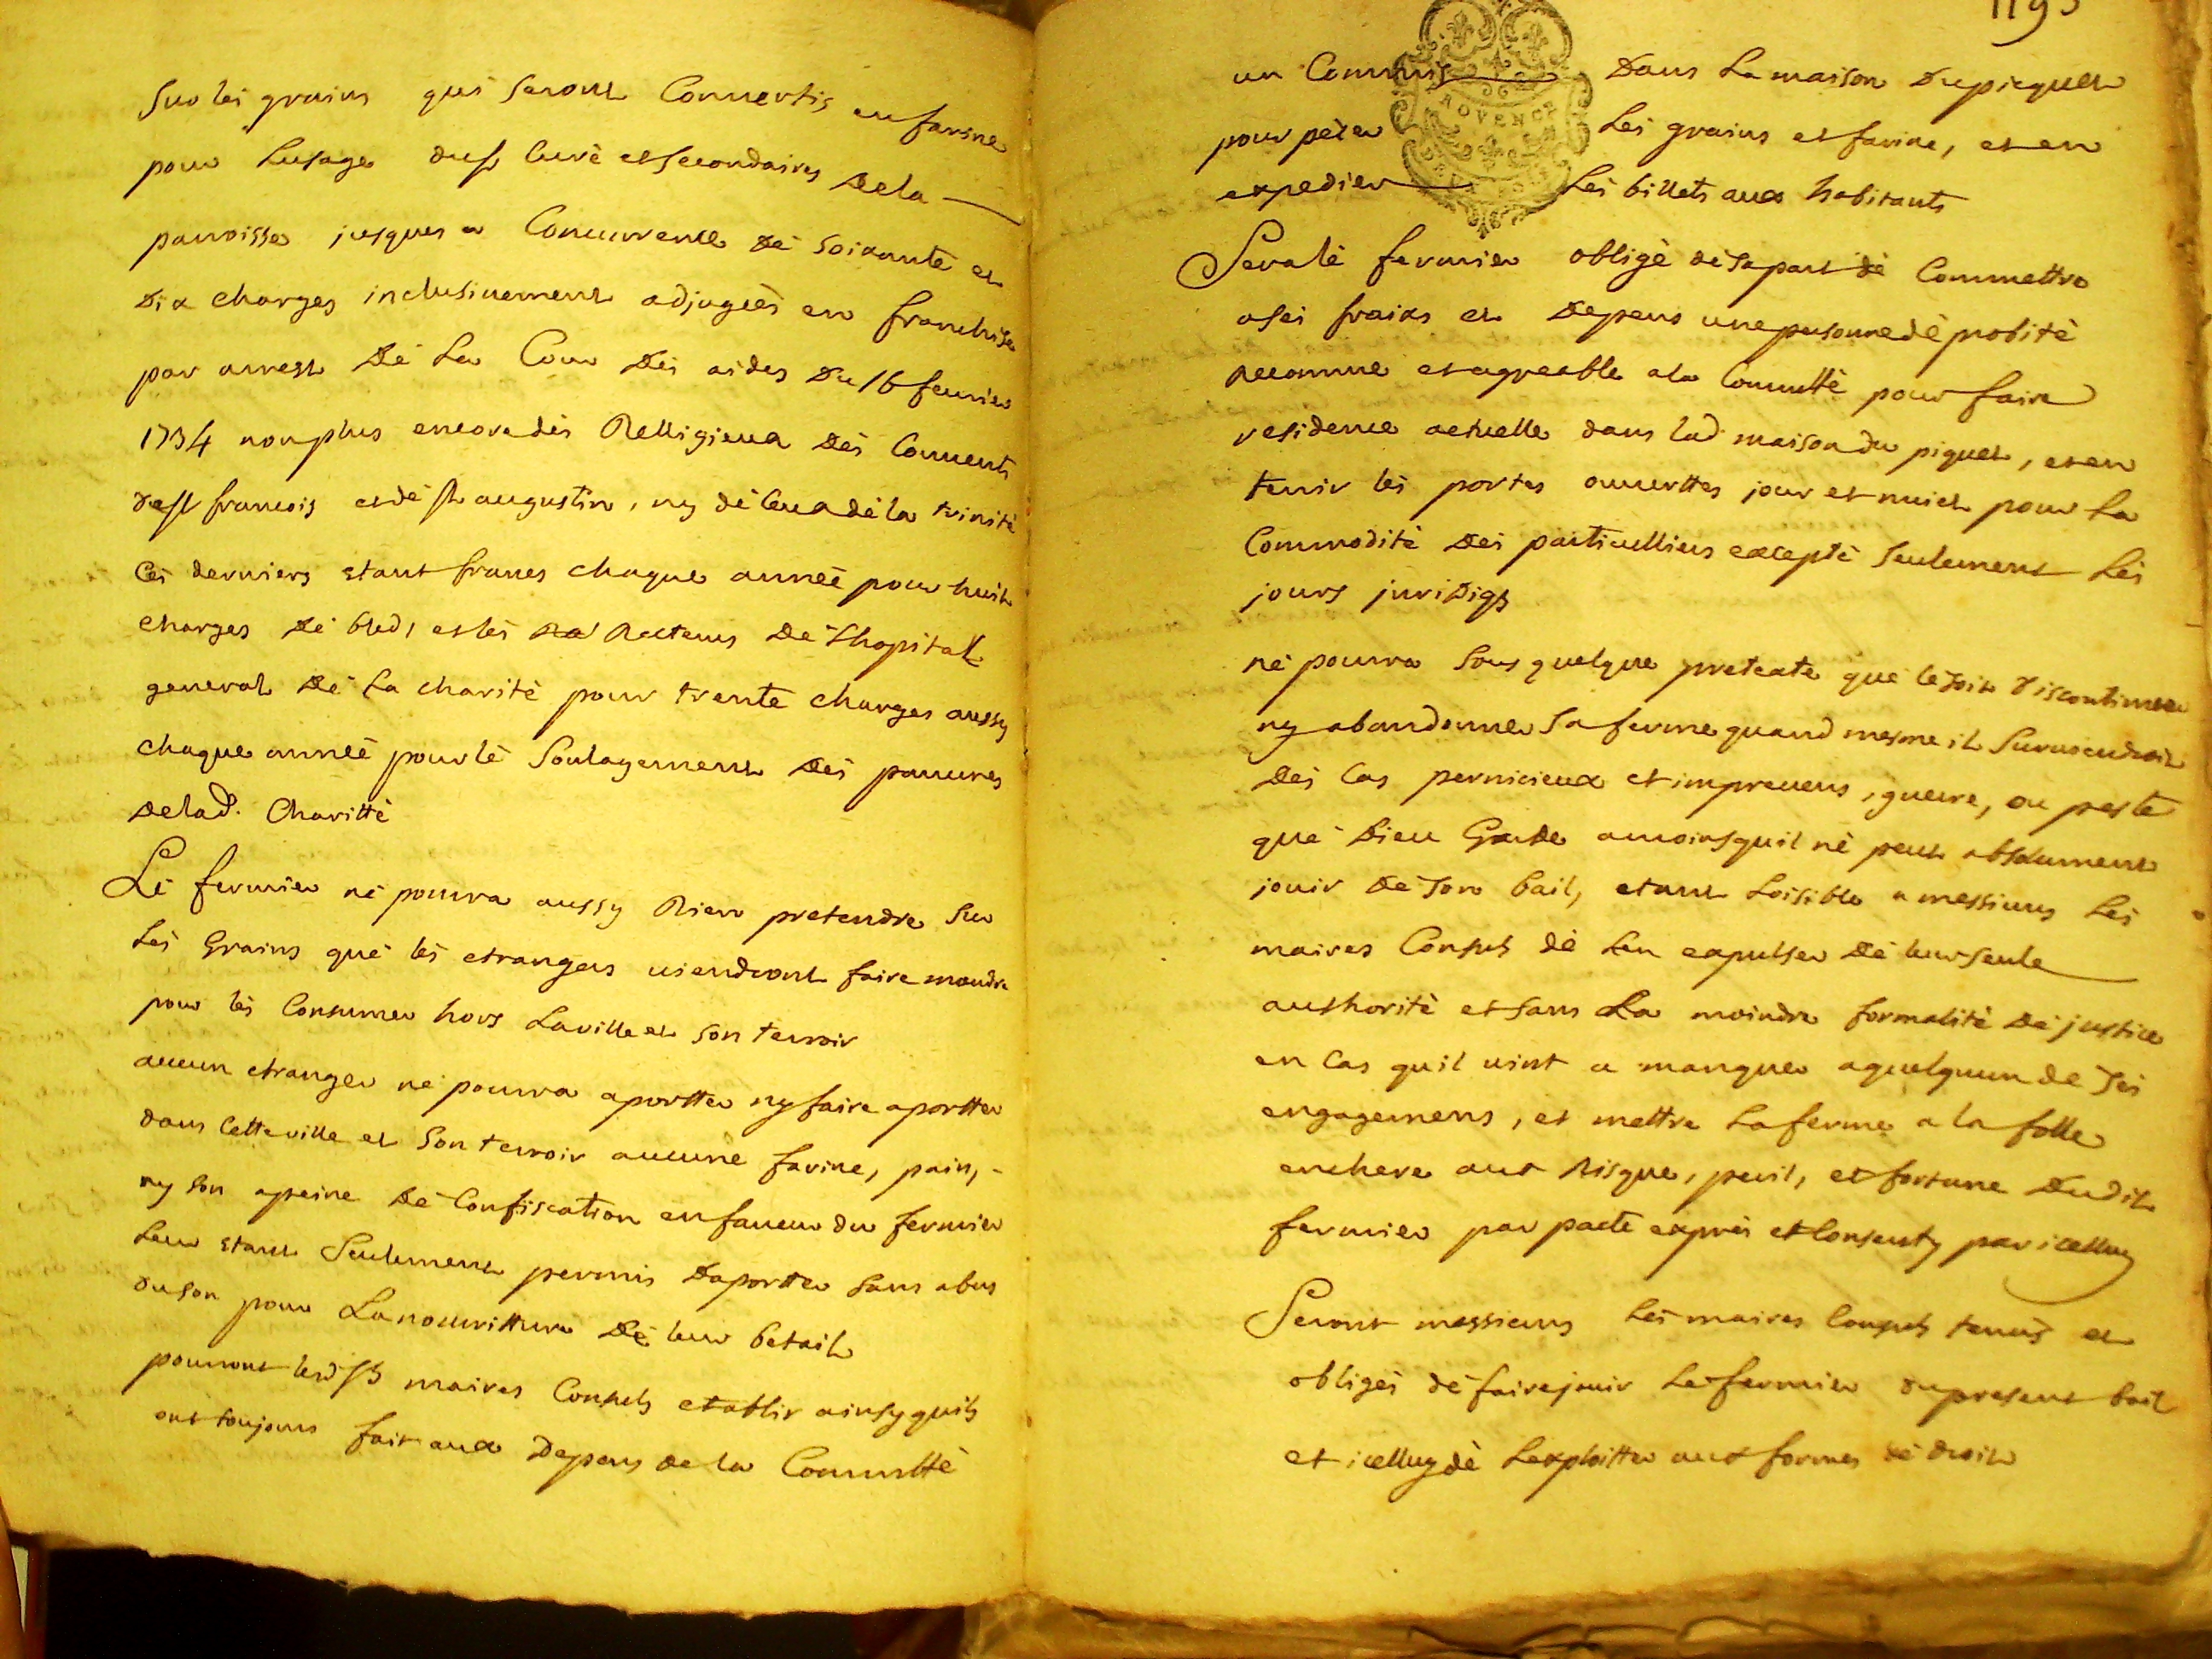 Sur les grains qui seront Conuertis en farine
pour lusage du sr Curé et secondaires de la
parroisse jusques a Concurrence de soixante et
dix charges inclusiuement adjugées en franchise
par arrest de la Cour des aides du 16 feurier
1734 non plus encore des Relligieux des Conuents
de st francois et de st augustin, ny de Ceux de la trinité
Ces derniers etant francs chaque année pour huit
charges de bled, et les Recteurs de Lhopital
general de La charité pour trente charges aussy
chaque année pour lé Soulagement des pauures
de lad. Charitté
Le fermier ne pourra aussy Rien pretendre sur
Les Grains que les etrangers uiendront faire moudre
pour les Consumer hors La ville et son terroir
aucun etranger ne pourra aportter ny faire aportter
dans Cette ville et Son terroir aucune farine, pain,
ny son apeine de Confiscation en faueur du fermier
Leur etant Seulement permis daportter sans abus
du son pour La nourritture de leur betail
pourront lesd srs maires Consuls etablir ainsy quils
ont toujours fait aux depens de la Communtté
1193
PROVENCE
un Commis dans La maison du picquet
pour peser Les grains et farine, et en
expedier Les billets aux habitants
Sera le fermier obligé de sa part de Commettre
a ses fraix et depens une personne de probité
reconnue et agreable a la Communtté pour faire
residence actuelle dans lad. maison du piquet, et en
tenir les portes ouuerttes jour et nuict pour La
Commodité des particulliers excepté Seulement Les
jours juridiqs
ne pourra Sous quelque pretexte que ce soit discontinuer
ny abandonner Sa ferme quand mesme il Suruiendroit
des Cas pernicieux et impreueus, guerre, ou peste
que Dieu Garde amoins quil ne peut absolument
jouir de son bail, etant Loisible a messieurs Les
maires Consuls de Len expulser de leur seule
authorité et sans La moindre formalité de justice
en Cas quil uint a manquer a quelquun de ses
engagemens, et mettre La ferme a la folle
enchere aux risque, peril, et fortune dudit
fermier par pacte exprés et Consenty par icelluy
Seront messieurs Les maires Consuls tenus et
obligés de faire jouir Le fermier du present bail
et icelluy de Lexploitter aux formes de droit